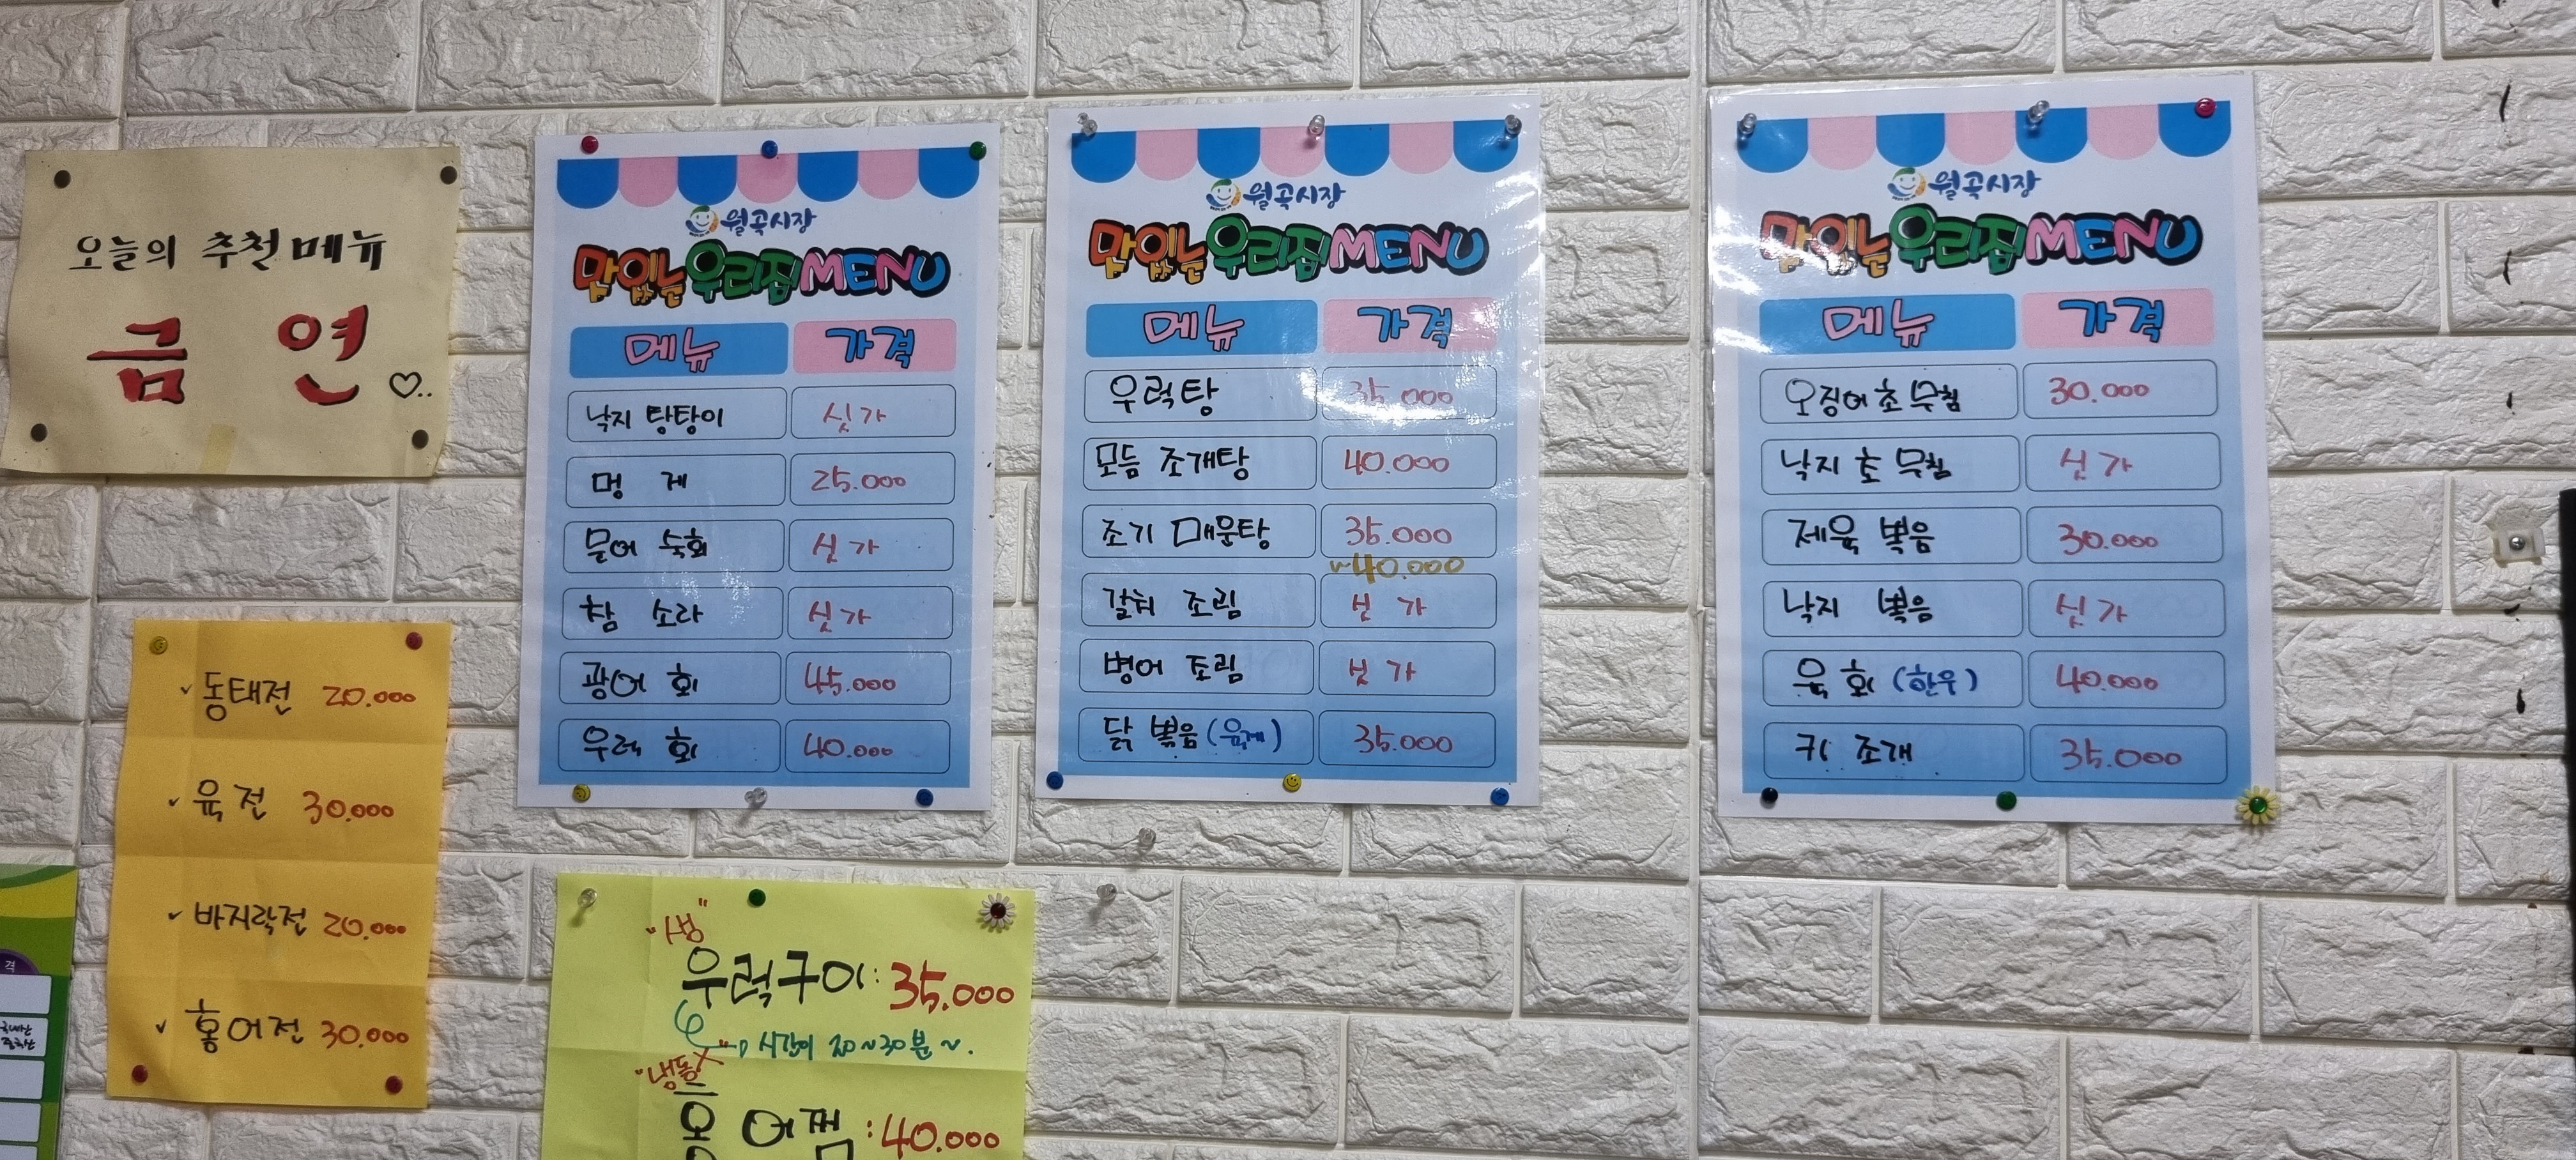 오늘의 추천메뉴
금 연
♡..
월곡시장
맛있는우리집MENU
메뉴 가격
낙지 탕탕이 싯가
멍 게 25.000
문어 숙회 싯가
참 소라 싯가
광어 회 45.000
우럭 회 40.000
월곡시장
맛있는우리집MENU
메뉴 가격
우럭탕 35.000
모듬 조개탕 40.000
조기 매운탕 35.000
~40.000
갈치 조림 싯가
병어 조림 싯가
닭 볶음(육계) 35.000
월곡시장
맛있는우리집MENU
메뉴 가격
오징어초무침 30.000
낙지 초 무침 싯가
제육 볶음 30.000
낙지 볶음 싯가
육 회 (한우) 40.000
키 조개 35.000
✓동태전 20.000
✓육전 30.000
✓바지락전 20.000
✓홍어전 30.000
"생"
우럭구이: 35.000
시간이 20~30분~.
"냉동X"
홍 어찜 :40.000
격